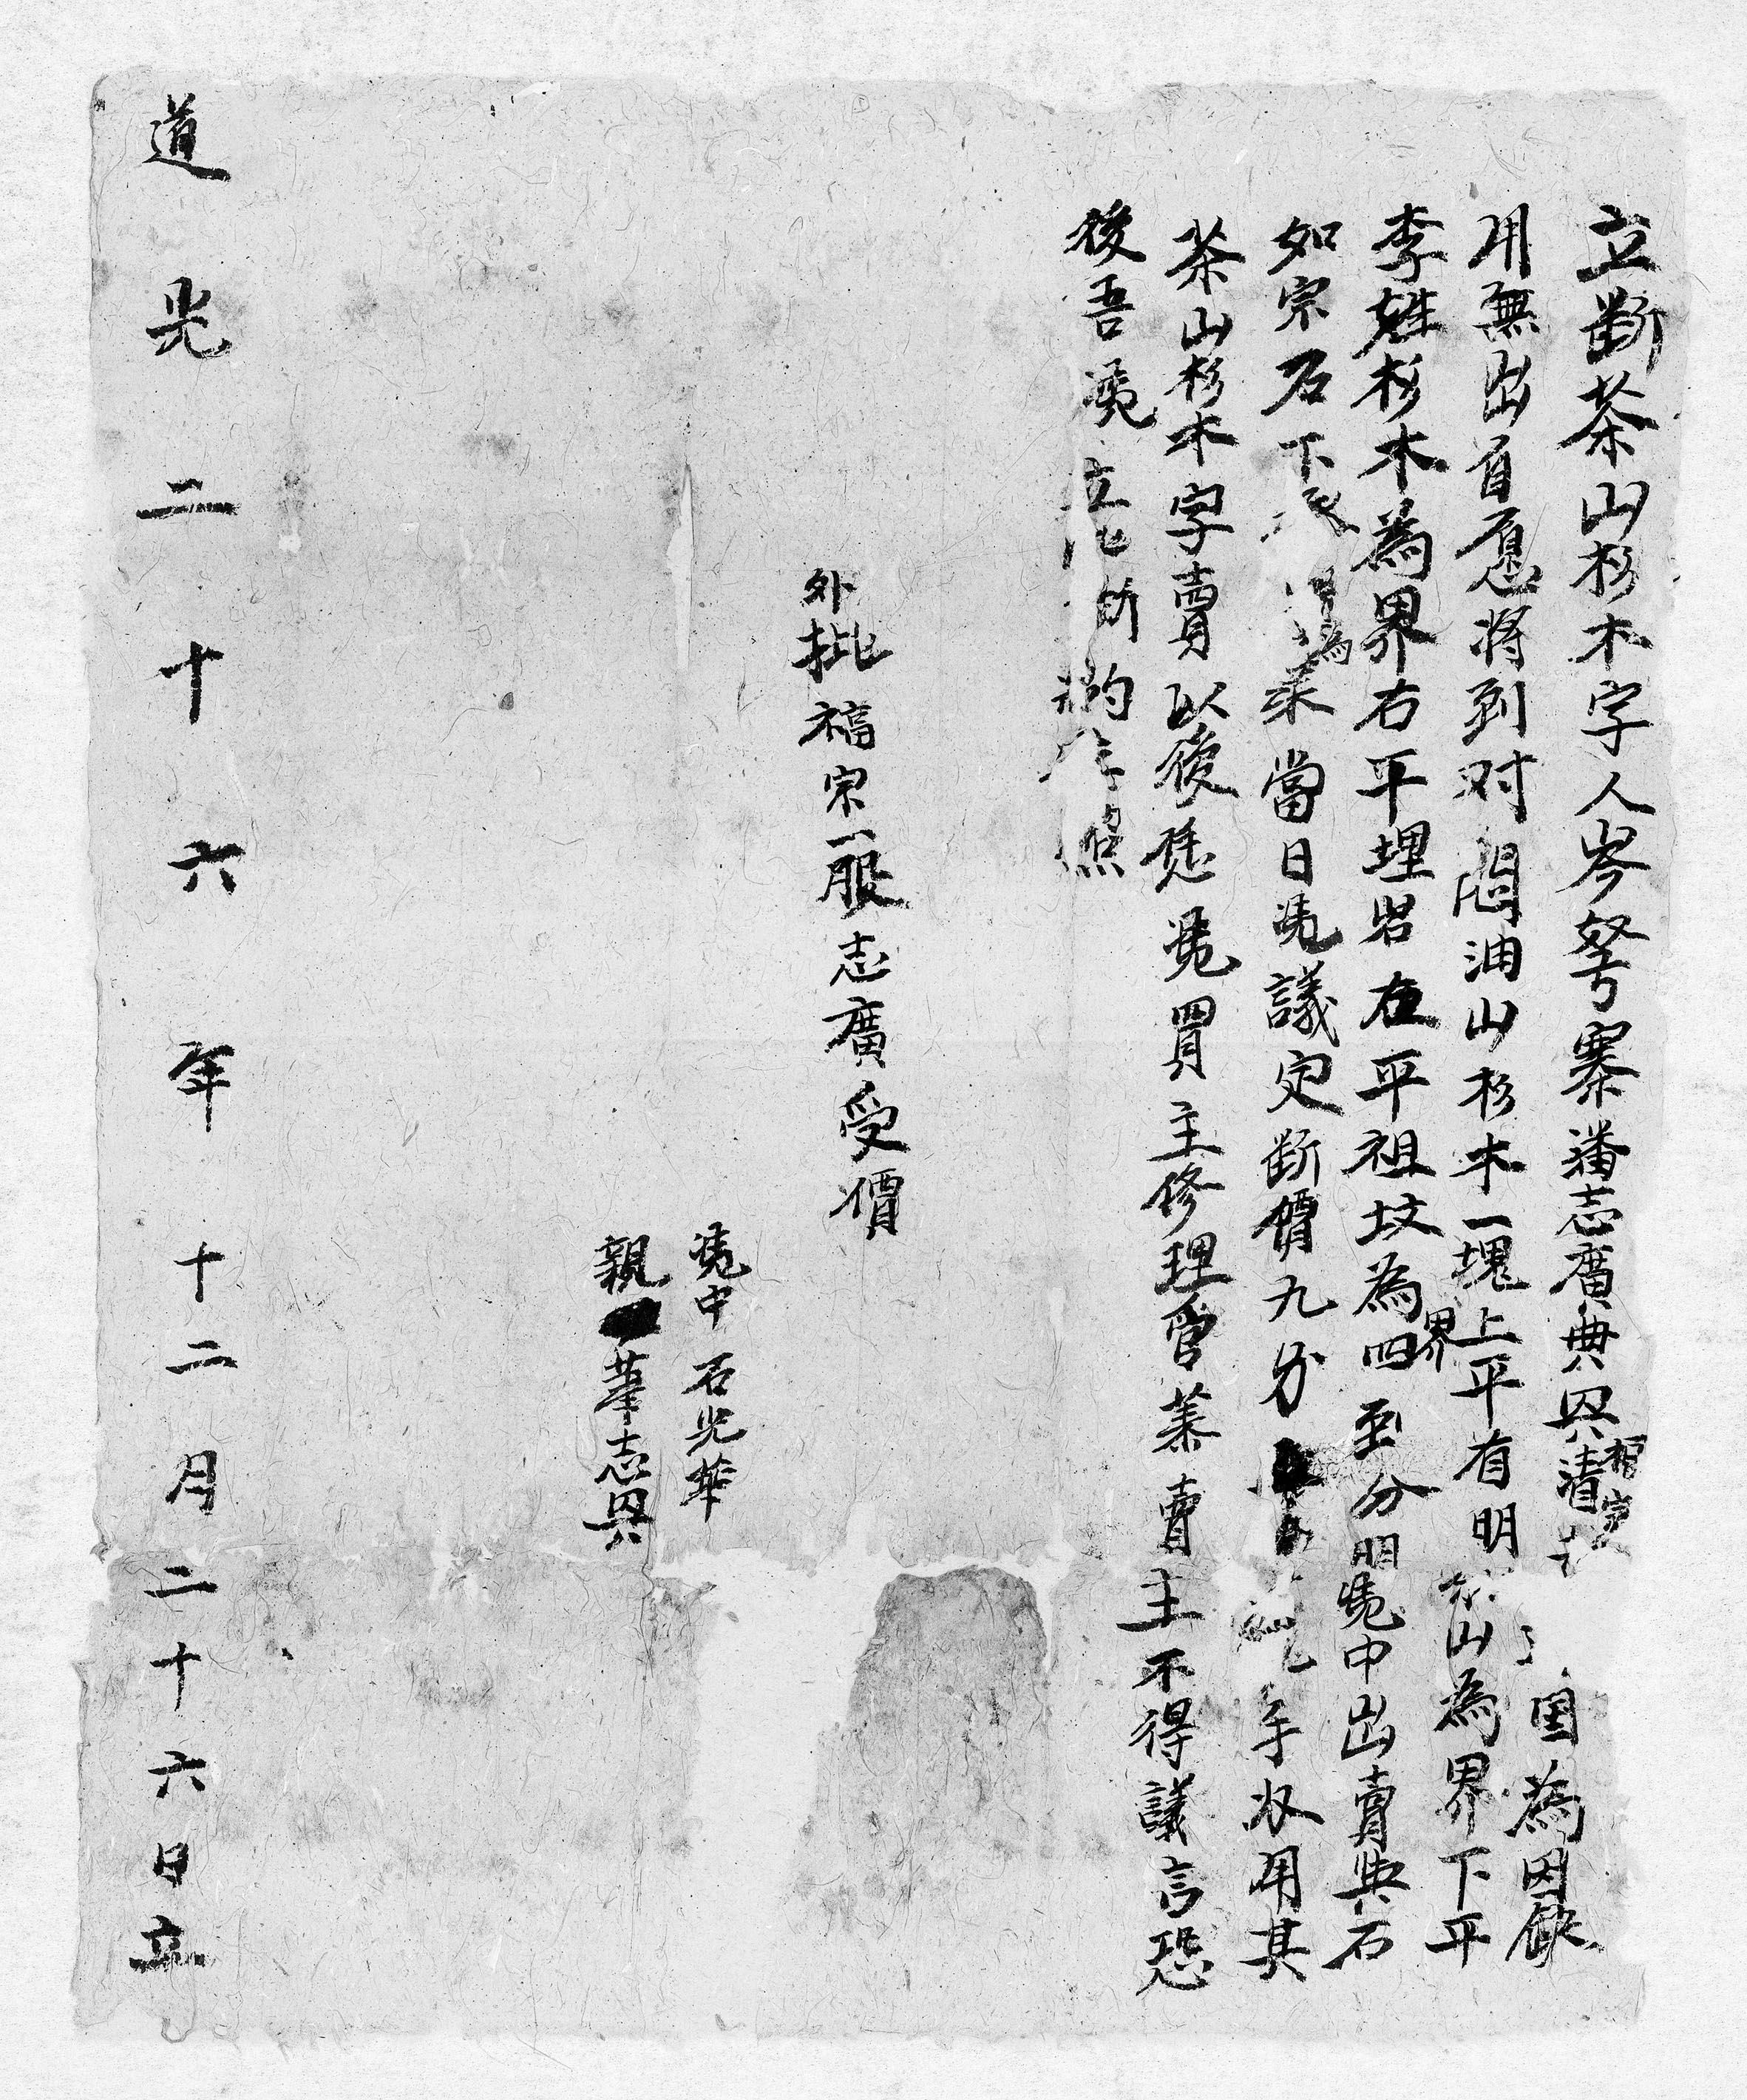 立斷茶山杉木字人岑弩寨潘志廣典興清相宗囯為因缺
用無出自愿将到对悶油山杉木一塊上平有明山為界下平
李姓杉木為界右平埋岩在平祖坟為界四至分明凴中出賣與石
如宗石下承當日凴議定断價九分手收用其
茶山杉木字賣以後恁凴買主修理管業賣主不得議言恐
後吾凴立此斷約存照
外批福宗一股志廣受價
凴中石光華
親筆志興
道光二十六年十二月二十六日立